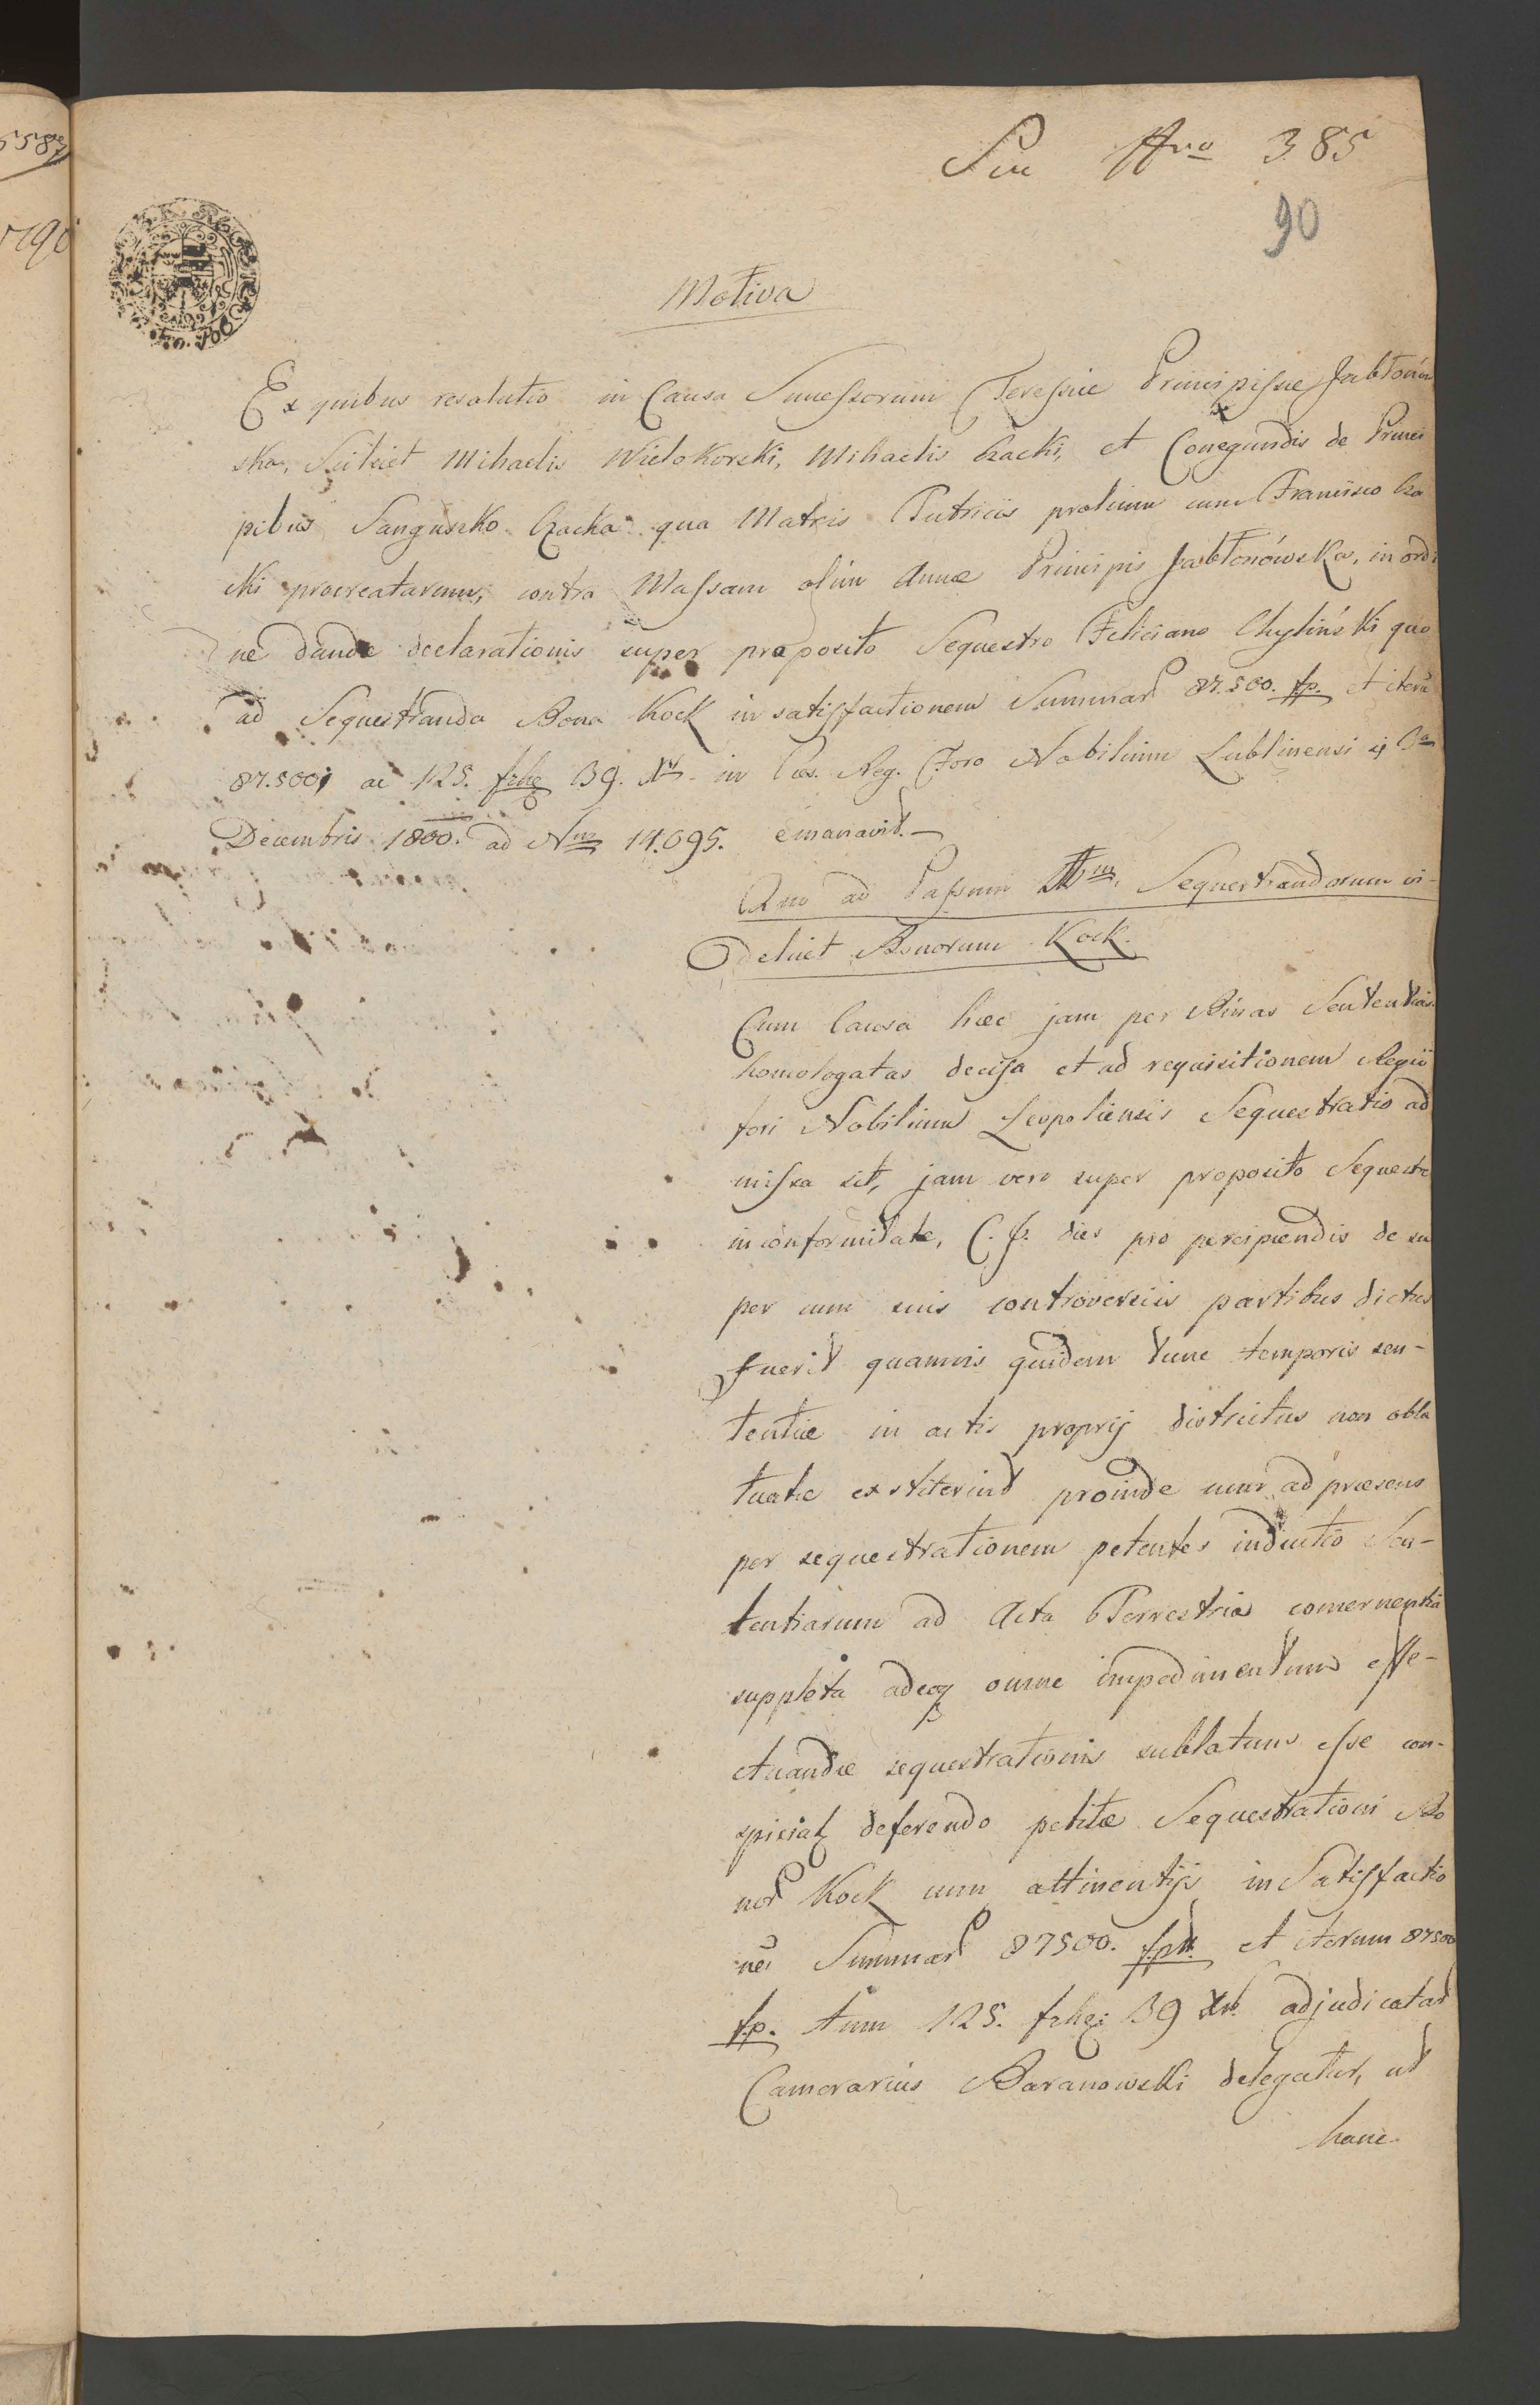 5587
1796
Sin Nro 385
90
Motiva
Ex quibus resolutio in Causa Sucessorum Teressiae Principissae Jabłonow
ska, Scilicet Mihaelis Wielokorski, Mihaelis Czacki, et Conegundis de Princi
pibus Sanguszko Czacka qua Matris Tutricis prolium cum Francisco Cza
cki procreatarum, contra Massam olim Annae Principis Jabłonówska, in ordi
ne dandae declarationis super proposito Sequestro Feliciano Chyliński quo
ad Sequestranda Bona Kock in satisfactionem Summar 87.500. fp. et iteru
87.500, ac 125. frhe 39. Xr in Caes. Reg. Foro Nobilium Lublinensi
Decembris 1800. ad Nrm 14.095. emanavit.
Quo ad Passum Sequestrandorum vi-
delicet Bonorum Kock.
Cum Causa haec jam per Binas Sententias
homologatas decisa et ad requisitionem Regii
fori Nobilium Leopoliensis Sequestratio ad
missa sit, jam vero super proposito Sequestro
in conformitate, C. J. dies pro percipiendis de su
per cum suis controversiis partibus dictus
fuerit quamvis quidem tunc temporis sen-
tentiae in actis proprij districtus non obla
tuatae exstiterint proinde cum ad praesens
per sequestrationem petentes inductio Sen-
tentiarum ad Acta Terrestria concernentia
suppleta adeoq omne impedimentum effe-
ctuandae sequestrationis sublatum esse con-
spiciat deferendo petitae Sequestrationi Bo
nor Kock cum attinentijs in Satisfactio
ne Summar 87500. fpl. et iterum 87500
fp. tum 125. frhe 39 Xr. adjudicatar
Camerarius Baranowski delegatur, ut
hanc